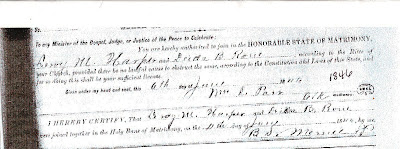 To any Minister of the Gospel, Judge, or Justice of the Peace to Celebrate:
You are hereby authorized to join in the HONORABLE STATE OF MATRIMONY,
Leroy M. Harper and B. Rone, according to the Rites of
your Church, provided there be no lawful cause to obstruct the same, according to the Constitution and Laws of this State, and
for so doing this shall be your sufficient license.
Given under my hand and seal, this 6th day of June 1846
Parr Clk
I HEREBY CERTIFY, That Leroy M. Harper and B. Rone
were joined together in the Holy Bans of Matrimony, on the day of June 184
B. S.